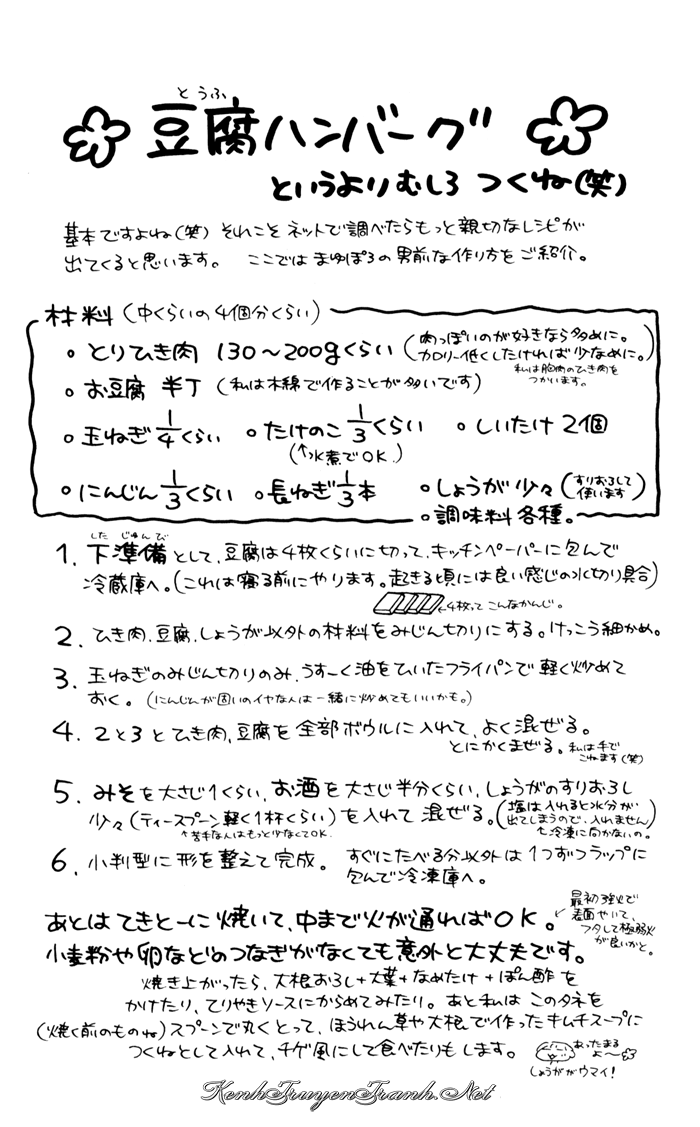 とうふ
豆腐ハンバーグ
というよりむしろ つくね(笑)
基本ですよね(笑) それこそネットで調べたらもっと親切なレシピが
出てくると思います。 ここでは まゆぽろの男前な作り方をご紹介。
材料(中くらいの4個分くらい)
・とりひき肉 130〜200gくらい(肉っぽいのが好きなら多めに。
カロリー低くしたければ少なめに。)
私は胸肉のひき肉を
つかいます。
・お豆腐 半丁(私は木綿で作ることが多いです)
・玉ねぎ1/4くらい ・たけのこ1/3くらい ・しいたけ2個
(↑水煮でOK.)
・にんじん1/3くらい ・長ねぎ1/3本 ・しょうが少々(すりおろして
使います)
・調味料各種。
したじゅんび
1. 下準備として、豆腐は4枚くらいに切って、キッチンペーパーに包んで
冷蔵庫へ。(これは寝る前にやります。起きる頃には良い感じの水切り具合)
←4枚って こんなかんじ。
2. ひき肉、豆腐、しょうが以外の材料をみじん切りにする。けっこう細かめ。
3. 玉ねぎのみじん切りのみ、うすーく油をひいたフライパンで軽く炒めて
おく。(にんじんが固いのイヤな人は一緒に炒めてもいいかも。)
4. 2と3とひき肉、豆腐を全部ボウルに入れて、よく混ぜる。
とにかくまぜる。私は手で
こねます(笑)
5. みそを大さじ1くらい、お酒を大さじ半分くらい、しょうがのすりおろし
少々(ティースプーン軽く1杯くらい)を入れて混ぜる。(塩は入れると水分が
出てしまうので、入れません)
↑苦手な人はもっと少なくてOK.
↑冷凍に向かないの。
6. 小判型に形を整えて完成。 すぐにたべる分以外は1つずつラップに
包んで冷凍庫へ。
あとはてきとーに焼いて、中まで火が通ればOK。
最初強火で
表面やいて、
フタして極弱火
が良いかと。
小麦粉や卵などのつなぎがなくても意外と大丈夫です。
焼き上がったら、大根おろし+大葉+なめたけ+ぽん酢を
かけたり、てりやきソースにからめてみたり。あと私はこのタネを
(焼く前のものね)スプーンで丸くとって、ほうれん草や大根で作ったキムチスープに
つくねとして入れて、チゲ風にして食べたりもします。
あったまる
よ〜
しょうががウマイ!
KenhTruyenTranh.Net